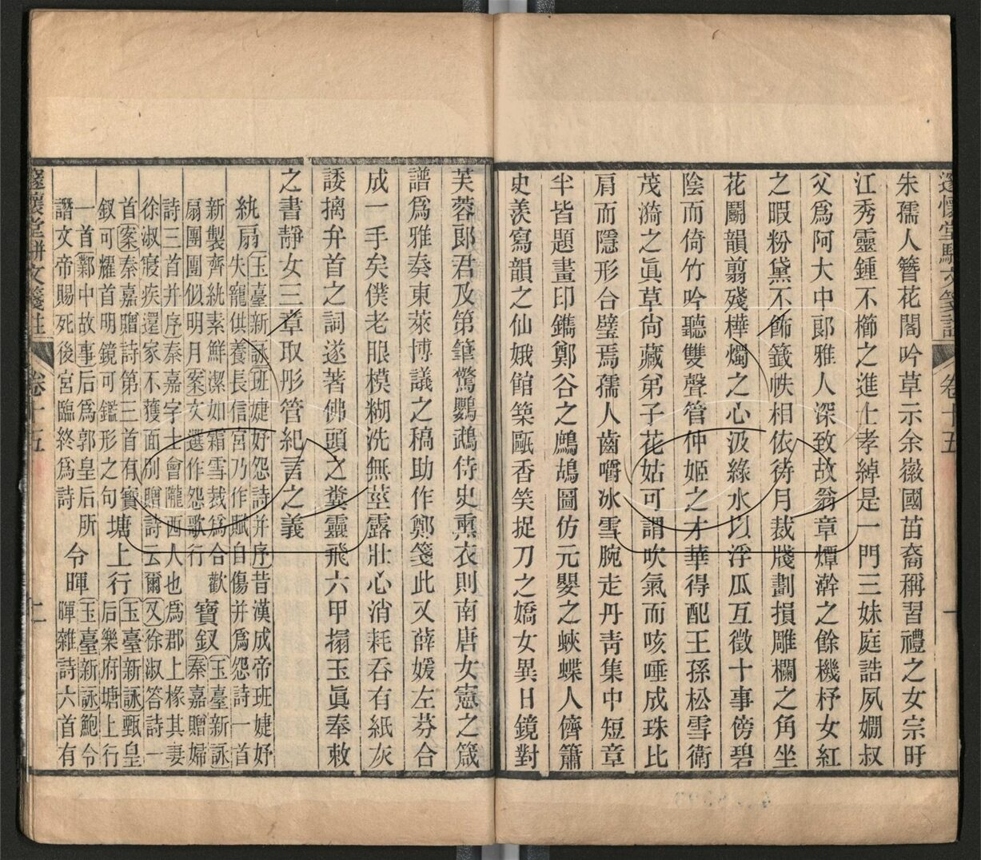 朱孺人簪花閣吟草示余嶽國苗裔稱習禮之女宗盱
江秀靈鍾不櫛之進士孝綽是一門三妹庭誥夙嫻叔
父爲阿大中郎雅人深致故翁章燂澣之餘機杼女紅
之暇粉黛不飾籤帙相依待月裁牋劃損雕欄之角坐
花鬭韻翦殘樺燭之心汲綠水以浮瓜互徵十事傍碧
陰而倚竹吟聽雙聲管仲姬之才華得配王孫松雪衛
茂漪之眞草尙藏弟子花姑可謂吹氣而咳唾成珠比
肩而隱形合璧焉孺人齒嚼冰雪腕走丹靑集中短章
半皆題畫印鐫鄭谷之鷓鴣圖仿元嬰之蛺蝶人儕簫
史羨寫韻之仙娥館築甌香笑捉刀之嬌女異日鏡對
卷十五
芙蓉郎君及第筆驚鸚鵡侍史熏衣則南唐女憲之箴
譜爲雅奏東萊博議之稿助作鄭箋此又薛媛左芬合
成一手矣僕老眼模糊洗無莖露壯心消耗吞有紙灰
諉摛弁首之詞遂著佛頭之糞靈飛六甲搨玉眞奉敕
之書靜女三章取彤管紀言之義
紈扇玉臺新詠班婕妤怨詩并序昔漢成帝班婕妤
失寵供養長信宮乃作賦自傷并爲怨詩一首
新製齊紈素鮮潔如霜雪裁爲合歡
扇團團似明月案文選作怨歌行
寶釵玉臺新詠
秦嘉贈婦
詩三首并序秦嘉字士會隴西人也爲郡上掾其妻
徐淑寢疾還家不獲面別贈詩云爾又徐淑答詩一
首案秦嘉贈詩第三首有寶
釵可耀首明鏡可鑑形之句
塘上行玉臺新詠甄皇
后樂府塘上行
一首鄴中故事后爲郭皇后所
譖文帝賜死後宮臨終爲詩
令暉玉臺新詠鮑令
暉雜詩六首有
邃懷堂駢文箋註
卷十五